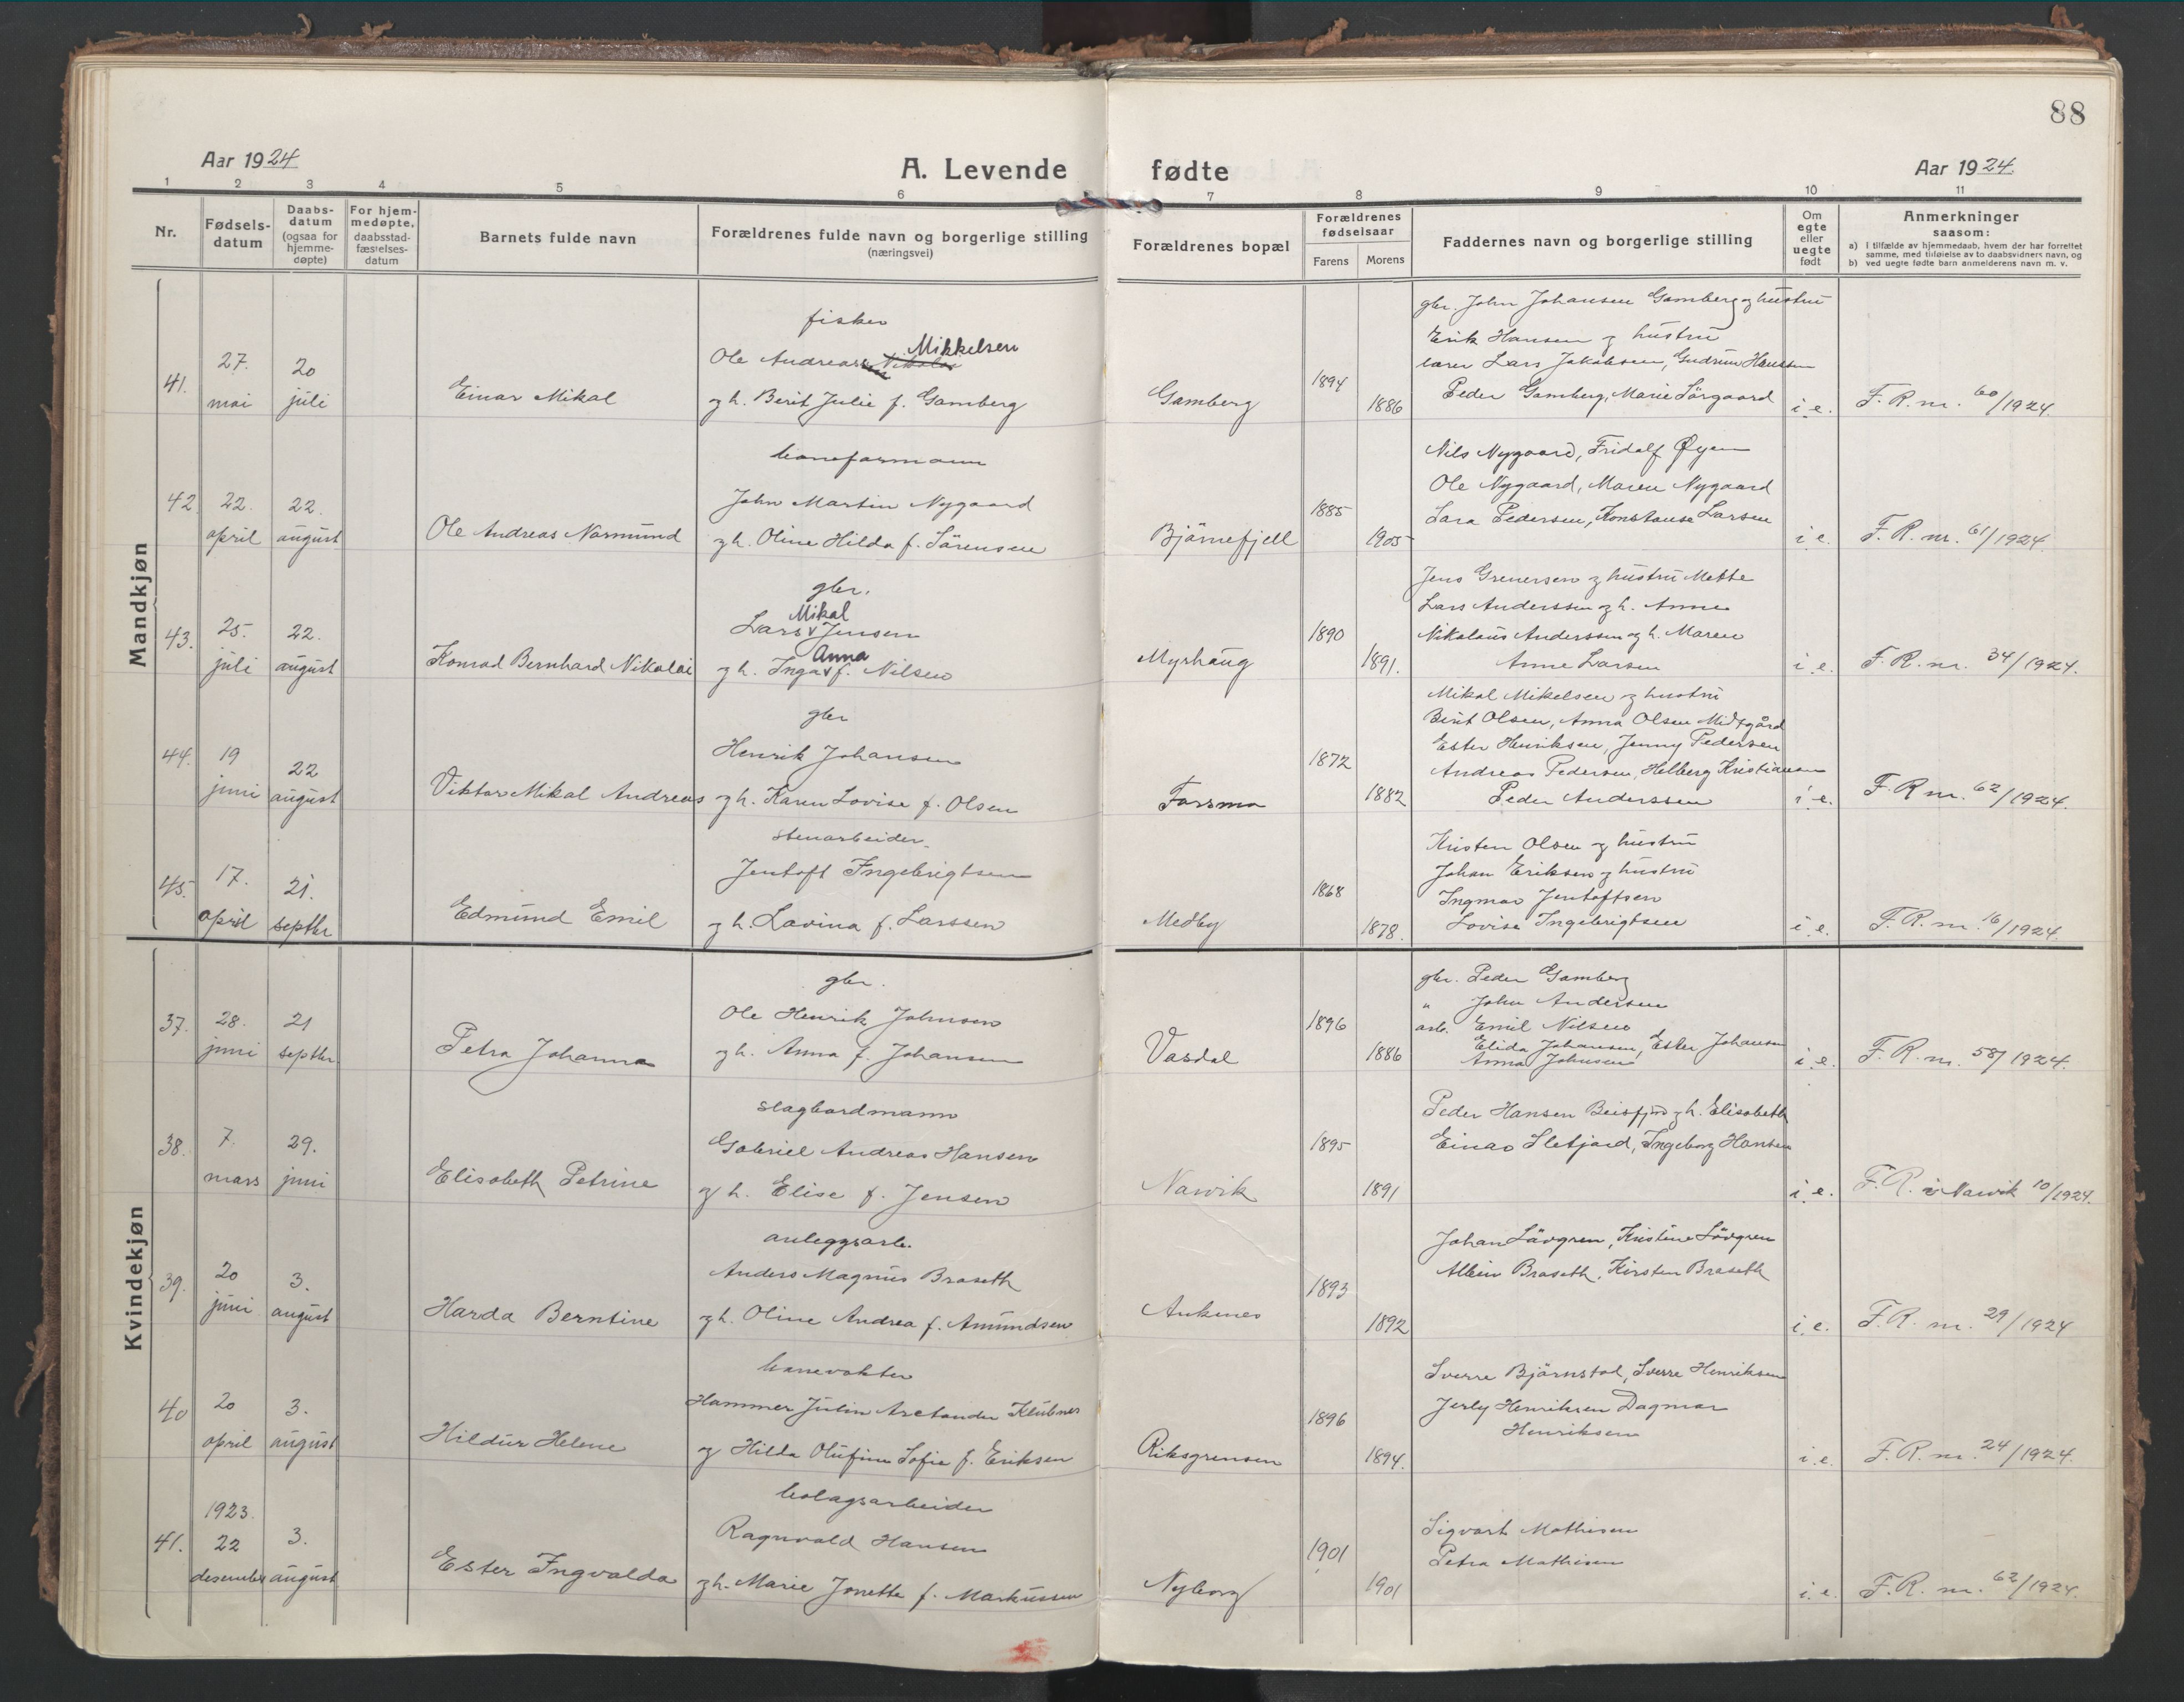 88
Aar 1924
A. Levende fødte
Aar 1924.
1 2 3 4 5 6 7 8 9 10 11
Nr.
Fødsels-
datum
Daabs-
datum
(ogsaa for
hjemme-
døpte)
For hjem-
medøpte,
daabsstad-
fæstelses-
datum
Barnets fulde navn
Forældrenes fulde navn og borgerlige stilling
(næringsvei)
Forældrenes bopæl
Forældrenes
fødselsaar
Farens
Morens
Faddernes navn og borgerlige stilling
Om
egte
eller
uegte
født
Anmerkninger
saasom:
a) i tilfælde av hjemmedaab, hvem der har forrettet
samme, med tilføielse av to daabsvidners navn, og
b) ved uegte fødte barn anmelderens navn m. v.
Mandkjøn
41.
27.
mai
20
juli
Einar Mikal
fisker
Mikkelsen
Ole Andreas
og h. Berit Julie f. Gamberg
Gamberg
1894
1886
gbr. John Johansen Gamberg og hustru
Erik Hansen og hustru
lærer Lars Jakobsen, Gudrun Hansen
Peder Gamberg, Marie Sörgaard
i. e.
F. R. nr. 60/1924.
42.
22.
april
22.
august
Ole Andreas Normund
baneformann
John Martin Nygaard
og h. Oline Hilda f. Sörensen
Björnefjell
1885
1905
Nils Nygaard, Fridolf Øyen
Ole Nygaard, Maren Nygaard
Lara Pedersen, Konstanse Larsen
i. e.
F. R. nr. 61/1924.
43.
25.
juli
22.
august
Konrad Bernhard Nikolai
gbr.
Mikal
Lars Jensen
Anna
og h. Inga f. Nilsen
Myrhaug
1890
1891.
Jens Grenersen og hustru Mette
Lars Anderssen og h. Anne
Nikolaus Anderssen og h. Maren
Anne Larsen
i. e.
F. R. nr. 34/1924.
44.
19
juni
22
august
Viktor Mikal Andreas
gbr
Henrik Johansen
og h. Karen Lovise f. Olsen
Forsmo
1872
1882
Mikal Mikelsen og hustru
Berit Olsen, Anna Olsen Midtgård
Ester Henriksen, Jenny Pedersen
Andreas Pedersen, Helberg Kristiansen
Peder Anderssen
i. e.
F. R nr. 62/1924.
45.
17.
april
21.
septbr
Edmund Emil
stenarbeider
Jentoft Ingebrigtsen
og h. Lavina f. Larssen
Medby
1868
1878.
Kristen Olsen og hustru
Johan Eriksen og hustru
Ingmar Jentoftsen
Lovise Ingebrigtsen
i. e.
F. R. nr. 16/1924.
Kvindekjøn
37.
28.
juni
21
septbr
Petra Johanna
gbr.
Ole Henrik Johnsen
og h. Anna f. Johansen
Vasdal
1896
1886
gbr. Peder Gamberg
" John Andersen
arb. Emil Nilsen
Elida Johansen, Ester Johansen
Anna Johnsen
i. e.
F. R. nr. 58/1924.
38.
7.
mars
29.
juni
Elisabeth Petrine
slagbordmann
Gabriel Andreas Hansen
og h. Elise f. Jensen
Narvik
1895
1891
Peder Hansen Beisfjord og h. Elisabeth
Einar Sletjord, Ingeborg Hansen
i. e.
F. R. i Narvik 10/1924.
39.
20
juni
3.
august
Harda Berntine
anleggsarb.
Anders Magnus Braseth
og h. Oline Andrea f. Amundsen
Ankenes
1893
1892
Johan Lövgren, Kristine Lövgren
Albin Braseth, Kirsten Braseth
i. e.
F. R. nr. 29/1924
40
20
april
3.
august
Hildur Helene
banevokter
Hammer Julin Klubner
og Hilda Olufine Sofie f. Eriksen
Riksgrensen
1896
1894.
Sverre Björnstad, Sverre Henriksen
Jerly Henriksen Dagmar
Henriksen
i. e.
F. R. nr. 24/1924.
41.
1923.
22
desember
3.
august
Ester Ingvalda
bolagsarbeider
Ragnvald Hansen
og h. Marie Jonette f. Markussen
Nyborg
1901
1901
Sigvart Mathisen
Petra Mathisen
i. e.
F. R. nr. 62/1924.